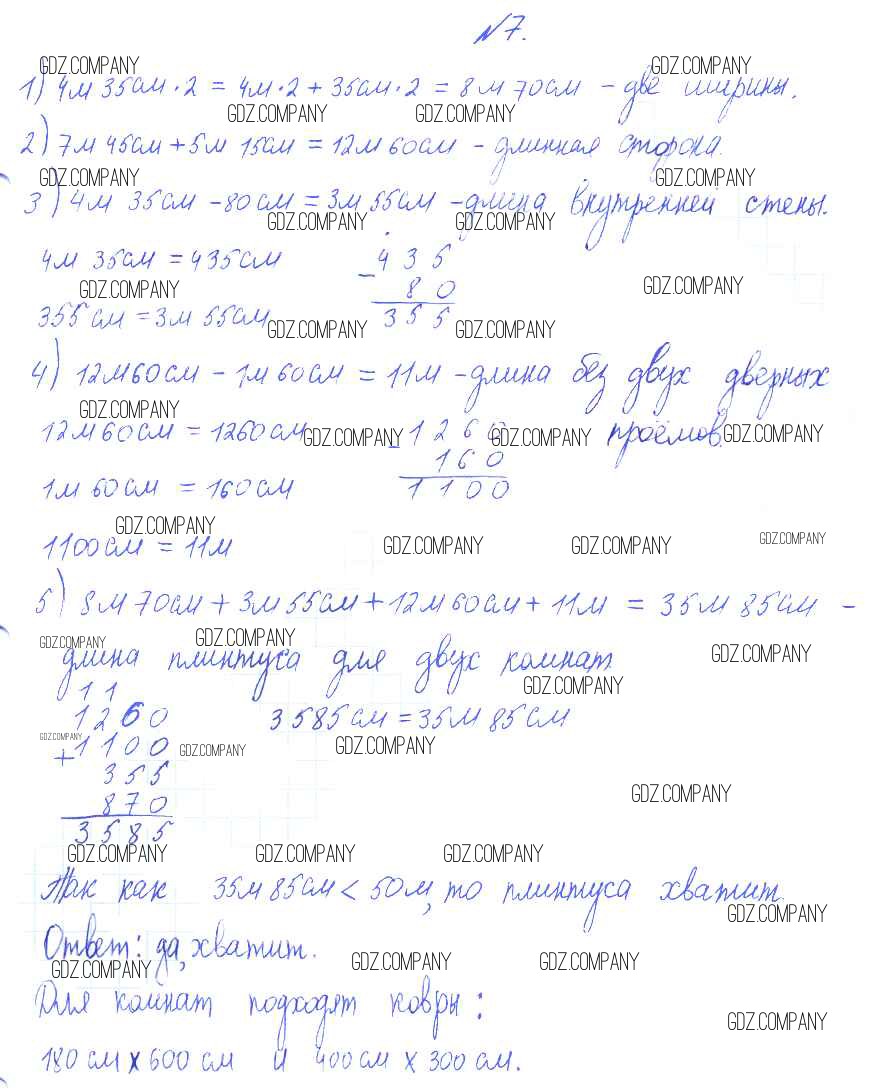 №7.
GDZ.COMPANY GDZ.COMPANY
1) 4м 35см · 2 = 4м · 2 + 35см · 2 = 8м 70см - две ширины.
GDZ.COMPANY GDZ.COMPANY
2) 7м 45см + 5м 15см = 12м 60см - длинная сторона.
GDZ.COMPANY GDZ.COMPANY
3) 4м 35см - 80см = 3м 55см - длина внутренней стены.
GDZ.COMPANY GDZ.COMPANY
4м 35см = 435см - 435
GDZ.COMPANY 80 GDZ.COMPANY
355см = 3м 55см 355
GDZ.COMPANY GDZ.COMPANY
4) 12м60см - 1м 60см = 11м - длина без двух дверных
GDZ.COMPANY
12м60см = 1260см - 1260 проёмов.
GDZ.COMPANY GDZ.COMPANY GDZ.COMPANY
160
1м 60см = 160см 1100
GDZ.COMPANY
1100см = 11м GDZ.COMPANY GDZ.COMPANY GDZ.COMPANY
5) 8м 70см + 3м 55см + 12м 60см + 11м = 35м 85см -
GDZ.COMPANY GDZ.COMPANY
длина плинтуса для двух комнат GDZ.COMPANY
11 GDZ.COMPANY
1260 3585см = 35м 85см
GDZ.COMPANY
+ 1100 GDZ.COMPANY GDZ.COMPANY
355
870 GDZ.COMPANY
3585
GDZ.COMPANY GDZ.COMPANY GDZ.COMPANY
Так как 35м 85см < 50м, то плинтуса хватит.
GDZ.COMPANY
Ответ: да, хватит.
GDZ.COMPANY GDZ.COMPANY GDZ.COMPANY
Для комнат подходят ковры:
GDZ.COMPANY
180 см х 600 см и 400см х 300 см.